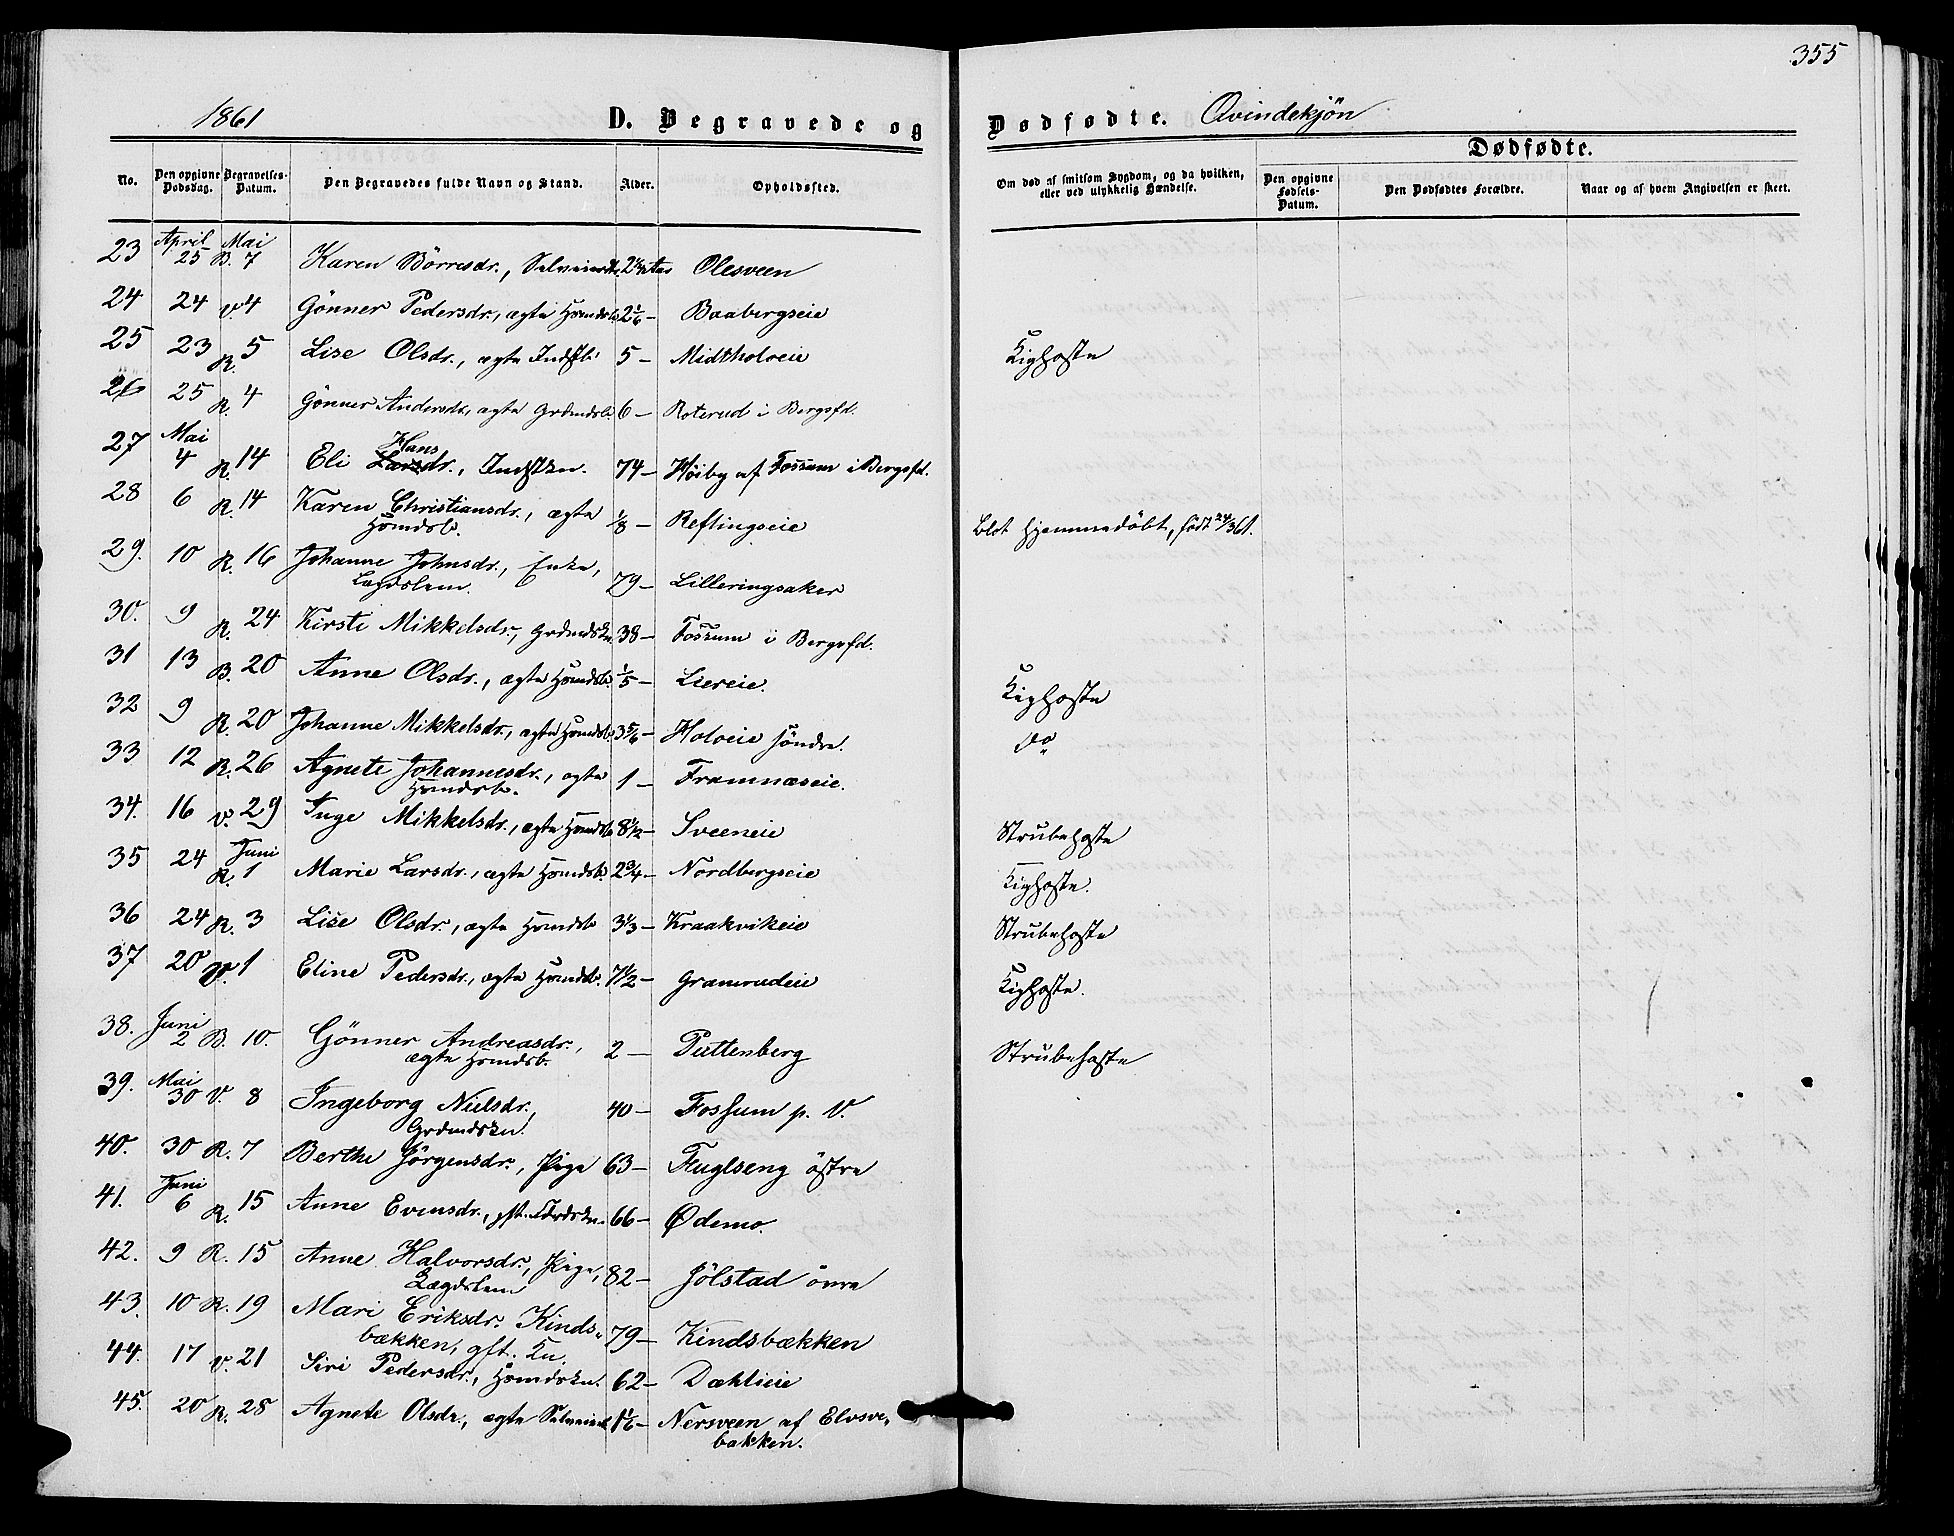 355
1861 D. Begravede og Dødfødte. Qvindekjön
Dødfødte.
No. Den opgivne Dødsdag. Begravelses-Datum. Den Begravedes fulde Navn og Stand. Alder. Opholdssted. Om død af smitsom Sygdom, og da hvilken, eller ved ulykkelig Hændelse. Den opgivne Fødsels-Datum. Den Dødfødtes Forældre. Naar og af hvem Angivelsen er skeet.
April Mai
23 25 B. 7 Karen Börresdr., Olesveen
24 24 v. 4 Gönner Pedersdr., ægte Hsmdsb. 2 1/6 – Baabergseie
25 23 R. 5 Lise Olsdr., ægte Indstb. 5 – Midtholoeie Kighoste
26 25 R. 4 Gönner Andersdr., ægte Grdmdsb. 6 – Roterud i Bergsfd.
Mai Hans
27 4 R. 14 Eli Larsdr., Indstkn. 74 – Höiby af Fossum i Bergsfd.
28 6 R. 14 Karen Christiansdr., ægte 1/8 – Reflingseie Blot hjemmedöbt, födt 24/3 61.
Hsmdsb.
29. 10 R. 16 Johanne Johnsdr., Enke, 79 – Lilleringsaker
Lægdslem.
30. 9 R. 24 Kirsti Mikkelsdr., Grdmdskn. 38 – Fossum i Bergsfd.
31 13 B. 20 Anne Olsdr., ægte Hsmdsb. 1/5 – Liereie. Kighoste
32 9 R. 20 Johanne Mikkelsdr., ægte Hsmdsb. 3 5/6 – Holoeie söndre. do
33 12 R. 26 Agnete Johannesdr., ægte 1 – Framnæseie.
Hsmdsb.
34. 16 v. 29 Inge Mikkelsdr., ægte Hsmdsb. 8 1/12 – Sveeneie Strubehoste
Juni
35 24 R. 1 Marie Larsdr., ægte Hsmdsb. 2 3/4 – Nordbergseie Kighoste.
36 24 R. 3 Lise Olsdr., ægte Hsmdsb 3 1/3 – Kraakvikeie Strubehoste
37 20 v. 1 Eline Pedersdr., ægte Hsmdsb. 7 1/2 – Gramrudeie Kighoste.
Juni
38. 2 B. 10. Gönner Andreasdr., 2 – Puttenberg Strubehoste
ægte Hsmdsb.
Mai
39. 30 V. 8 Ingeborg Nielsdr., 40 – Fossum p. V.
Grdmdskn.
40. 30 R. 7 Berthe Jörgensdr., Pige 63 – Fuglseng östre
Juni
41. 6 R. 15 Anne Evensdr., gft. 66 – Ødemo.
42. 9 R. 15 Anne Halvorsdr., Pige, 82 – Jölstad övre
Lægdslem
43. 10 R. 19 Mari Eriksdr. Kinds- 79 – Kindsbækken
bækken, gft. Kn.
44. 17 v. 21 Siri Pedersdr., Hsmdskn. 62 – Dæhlieie
45. 20 R. 28 Agnete Olsdr., ægte 1 1/6 – Nersveen af Elvsve-
bakken.